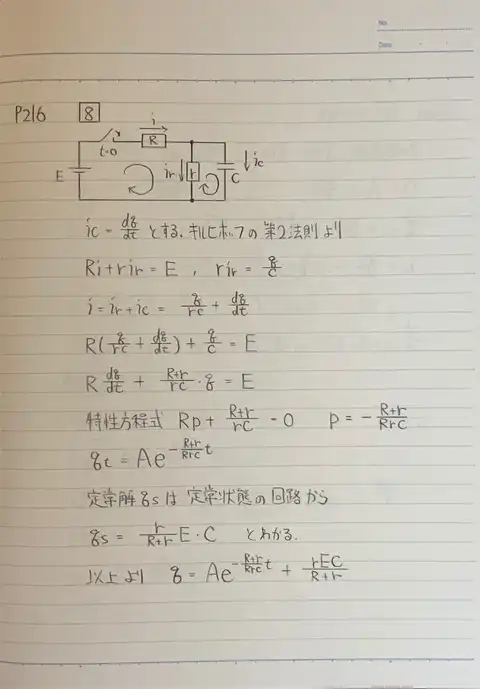 No.
Date
P216 8
i
R
t=0
E
ir
r
C
ic
ic = dq/dt とする。キルヒホッフの第2法則より
Ri + rir = E , rir = q/C
i = ir + ic = q/rC + dq/dt
R(q/rC + dq/dt) + q/C = E
R dq/dt + R+r/rC · q = E
特性方程式 Rp + R+r/rC = 0 p = - R+r/RrC
qt = Ae^(-R+r/RrC t)
定常解 qs は 定常状態の回路から
qs = r/R+r E · C とわかる。
以上より q = Ae^(-R+r/RrC t) + rEC/R+r